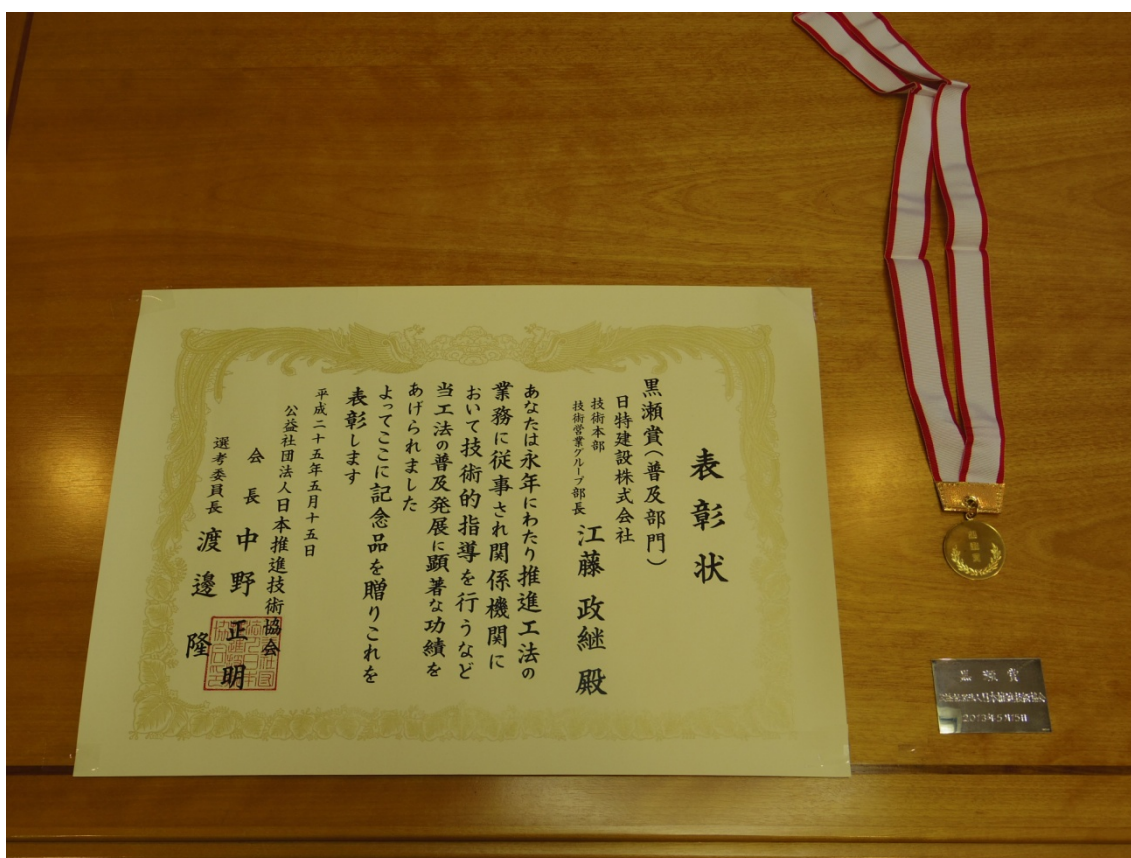 表彰状
黒瀬賞(普及部門)
日特建設株式会社
技術本部
技術営業グループ部長
江藤政継殿
あなたは永年にわたり推進工法の
業務に従事され関係機関に
おいて技術的指導を行うなど
当工法の普及発展に顕著な功績を
あげられました
よってここに記念品を贈りこれを
表彰します
平成二十五年五月十五日
公益社団法人日本推進技術協会
会長中野正明
選考委員長渡邊隆
黒瀬賞
黒瀬賞
公益社団法人日本推進技術協会
2013年5月15日